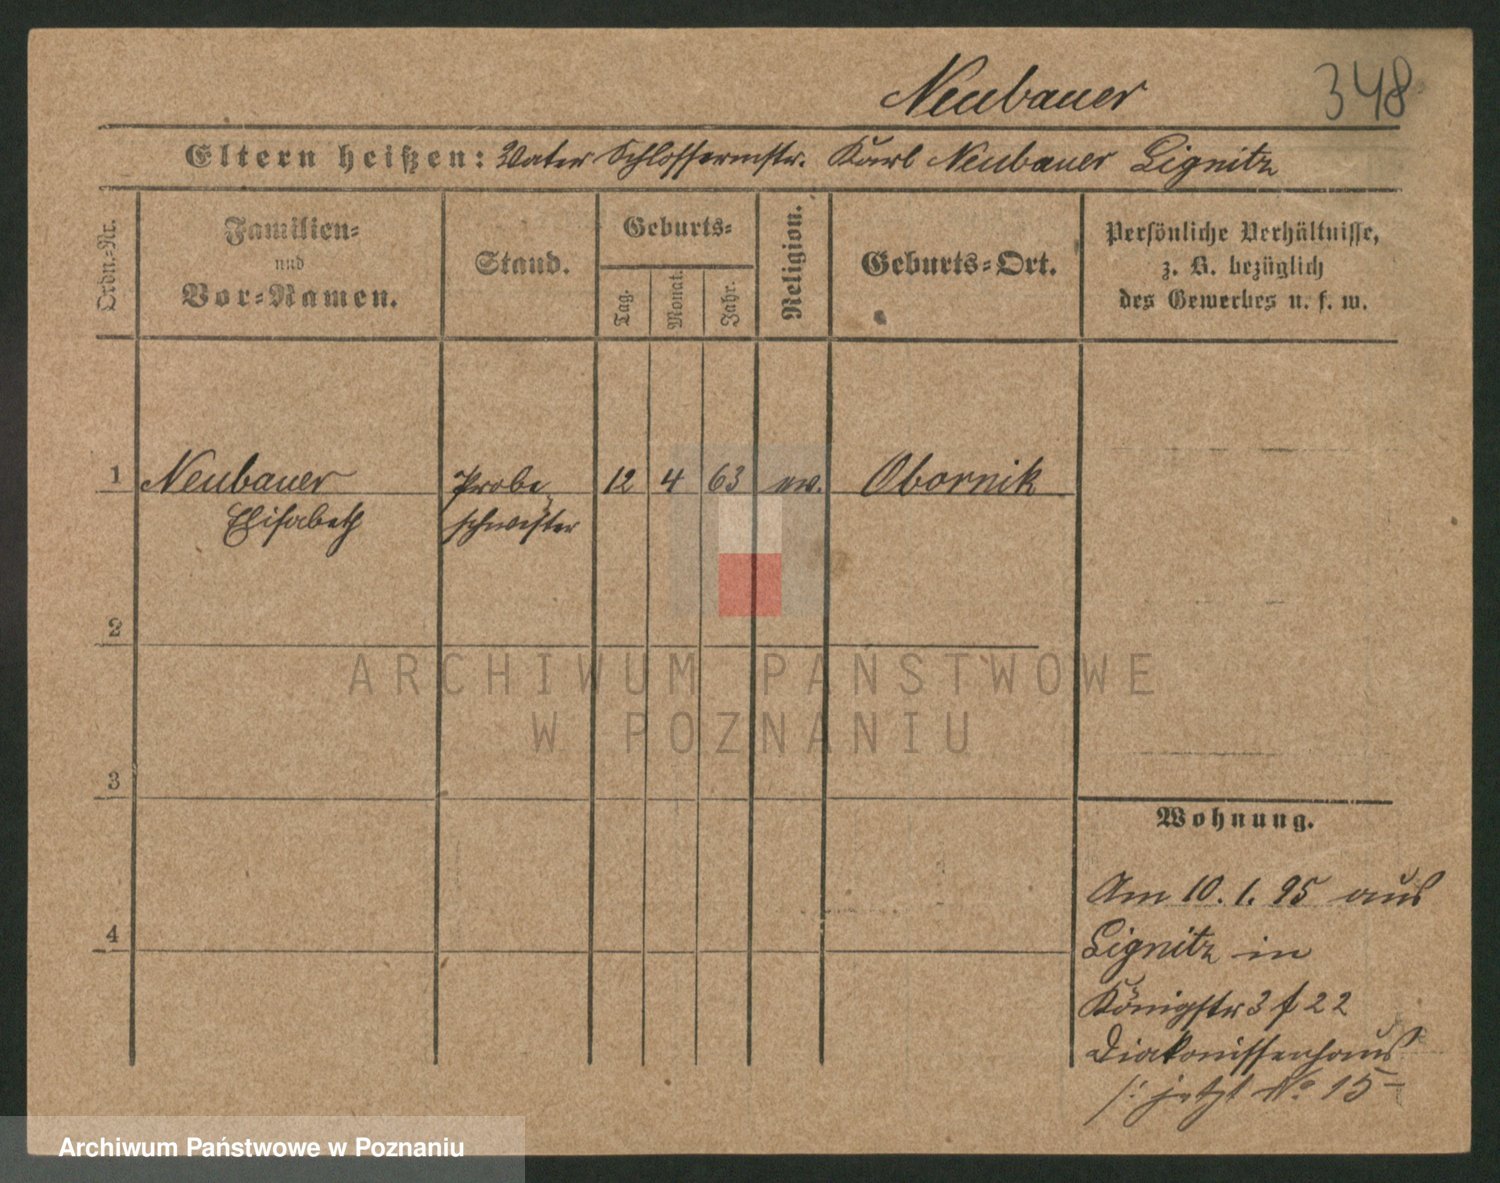 Neubauer 348
Eltern heißen: Vater Schlossermstr. Karl Neubauer Lignitz
Ordn.-Nr.
Familien-
und
Vor-Namen.
Stand.
Geburts-
Tag.
Monat.
Jahr.
Religion.
Geburts-Ort.
Persönliche Verhältnisse,
z. B. bezüglich
des Gewerbes u. s. w.
1 Neubauer Probe 12 4 63 ev. Obornik
Elisabeth schwester
2
3
4
Wohnung.
Am 10. 1. 95 aus
Lignitz in
Königstr 3 f 22
Diakonissenhaus
/: jetzt No 15-
ARCHIWUM PAŃSTWOWE
W POZNANIU
Archiwum Państwowe w Poznaniu